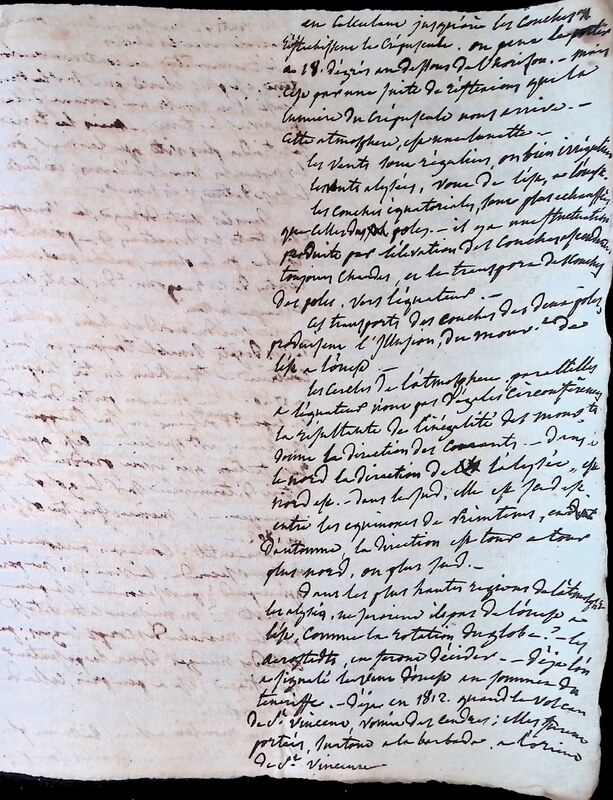 en calculant jusqu'où les couches
réfléchissent le crépuscule. on peut le porter
a 18. dégrés au dessous de l'horison. — mais
c'est par une suite de réflexions que la
lumiere du crépuscule nous arrive. —
cette atmosphere, est une lunette —
les vents sont reguliers, ou bien irréguliers
les vents alysées, vont de l'est, a l'ouest.
les couches équatoriales, sont plus echauffées
que celles des poles. — il y a une fluctuation
produite par l'élévation des couches ascendantes
toujours chaudes, et le transport des couches
des poles, vers l'équateur. —
ces transports des couches des deux poles,
produisent l'illusion, du mouv.t de
l'est a l'ouest —
les cercles de l'atmosphere paralleles
a l'équateur n'ont pas d'égales circonférences
la résultante de l'inégalité des mouv.ts
donne la direction des courants. — dans
le nord la direction de l'alysée, est
nord est. — dans le sud, elle est sud est
entre les equinoxes de printems, et
d'automne, la direction est tour a tour
plus nord, ou plus sud. —
Dans les plus hautes regions de l'atmosphère
les alysés, ne seroient ils pas de l'ouest a
l'est, comme la rotation du globe. ? — les
aerostats, en feront décider — déja l'on
a signalé les vents d'ouest au sommet du
teneriffe. — déja en 1812. quand le volcan
de S.t Vincent, vomit des cendres; elles furent
portées, surtout a la barbade a l'orient
de S.t Vincent